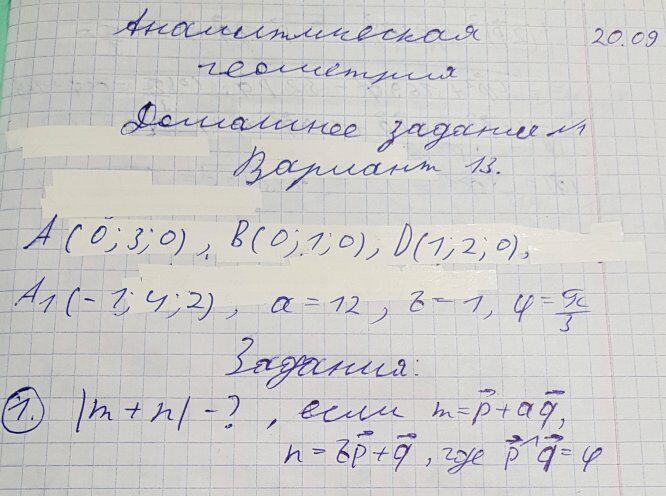 Аналитическая 20.09
геометрия
Домашнее задание №1
Вариант 13.
A(0; 3; 0), B(0; 1; 0), D(1; 2; 0),
A1(-1; 4; 2), a = 12, b = 1, φ = π/3
Задания:
1. |m + n| - ?, если m = p⃗ + aq⃗,
n = bp⃗ + q⃗, где p⃗^q⃗ = φ